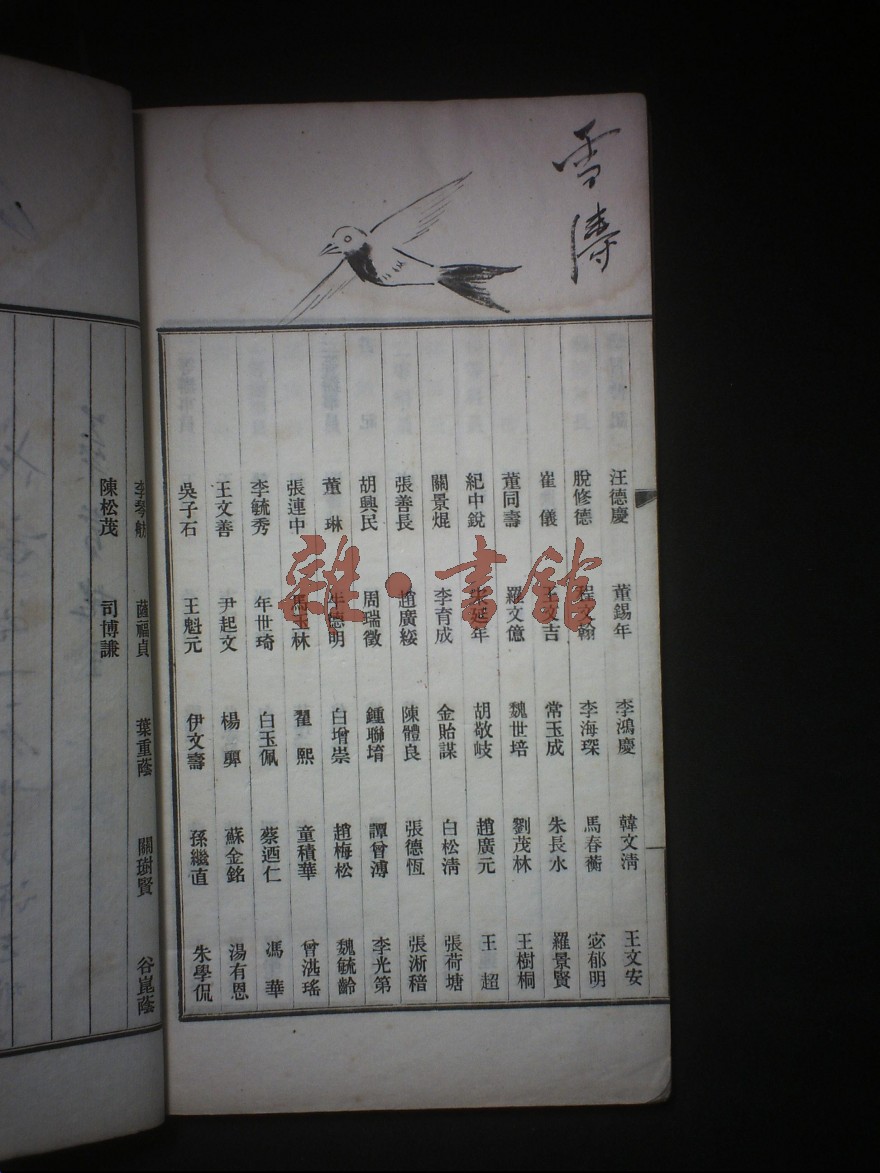 雪濤
汪德慶 董錫年 李鴻慶 韓文清 王文安
脫修德 程文翰 李海琛 馬春蘅 宓郁明
崔儀 王文吉 常玉成 朱長水 羅景賢
董同壽 羅文億 魏世培 劉茂林 王樹桐
紀中銳 朱延年 胡敬岐 趙廣元 王超
關景焜 李育成 金貽謀 白松淸 張荷塘
張善長 趙廣綏 陳體良 張德恆 張淅稖
胡興民 周瑞徵 鍾聯堉 譚曾溥 李光第
董琳 牛德明 白增崇 趙梅松 魏毓齡
張連中 馬玉林 翟熙 童積華 曾湛瑤
李毓秀 年世琦 白玉佩 蔡迺仁 馮華
王文善 尹起文 楊羿 蘇金銘 湯有恩
吳子石 王魁元 伊文壽 孫繼直 朱學侃
李琴舫 薩福貞 葉重蔭 關琱賢 谷崑蔭
陳松茂 司博謙
雜·書館